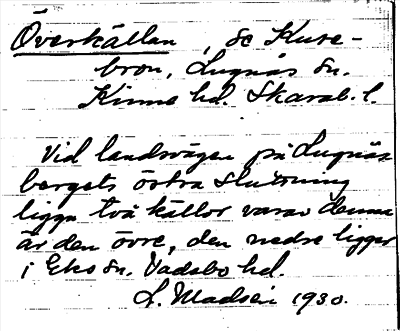 Överkällan, se Kure-
bron, Lugnås sn.
Kinne hd. Skarab. l.
Vid landsvägen på Lugnås
bergets östra sluttning
ligga två källor varav denna
är den övre, den nedre ligger
i Eks sn. Vadsbo hd.
L. Madsén 1930.